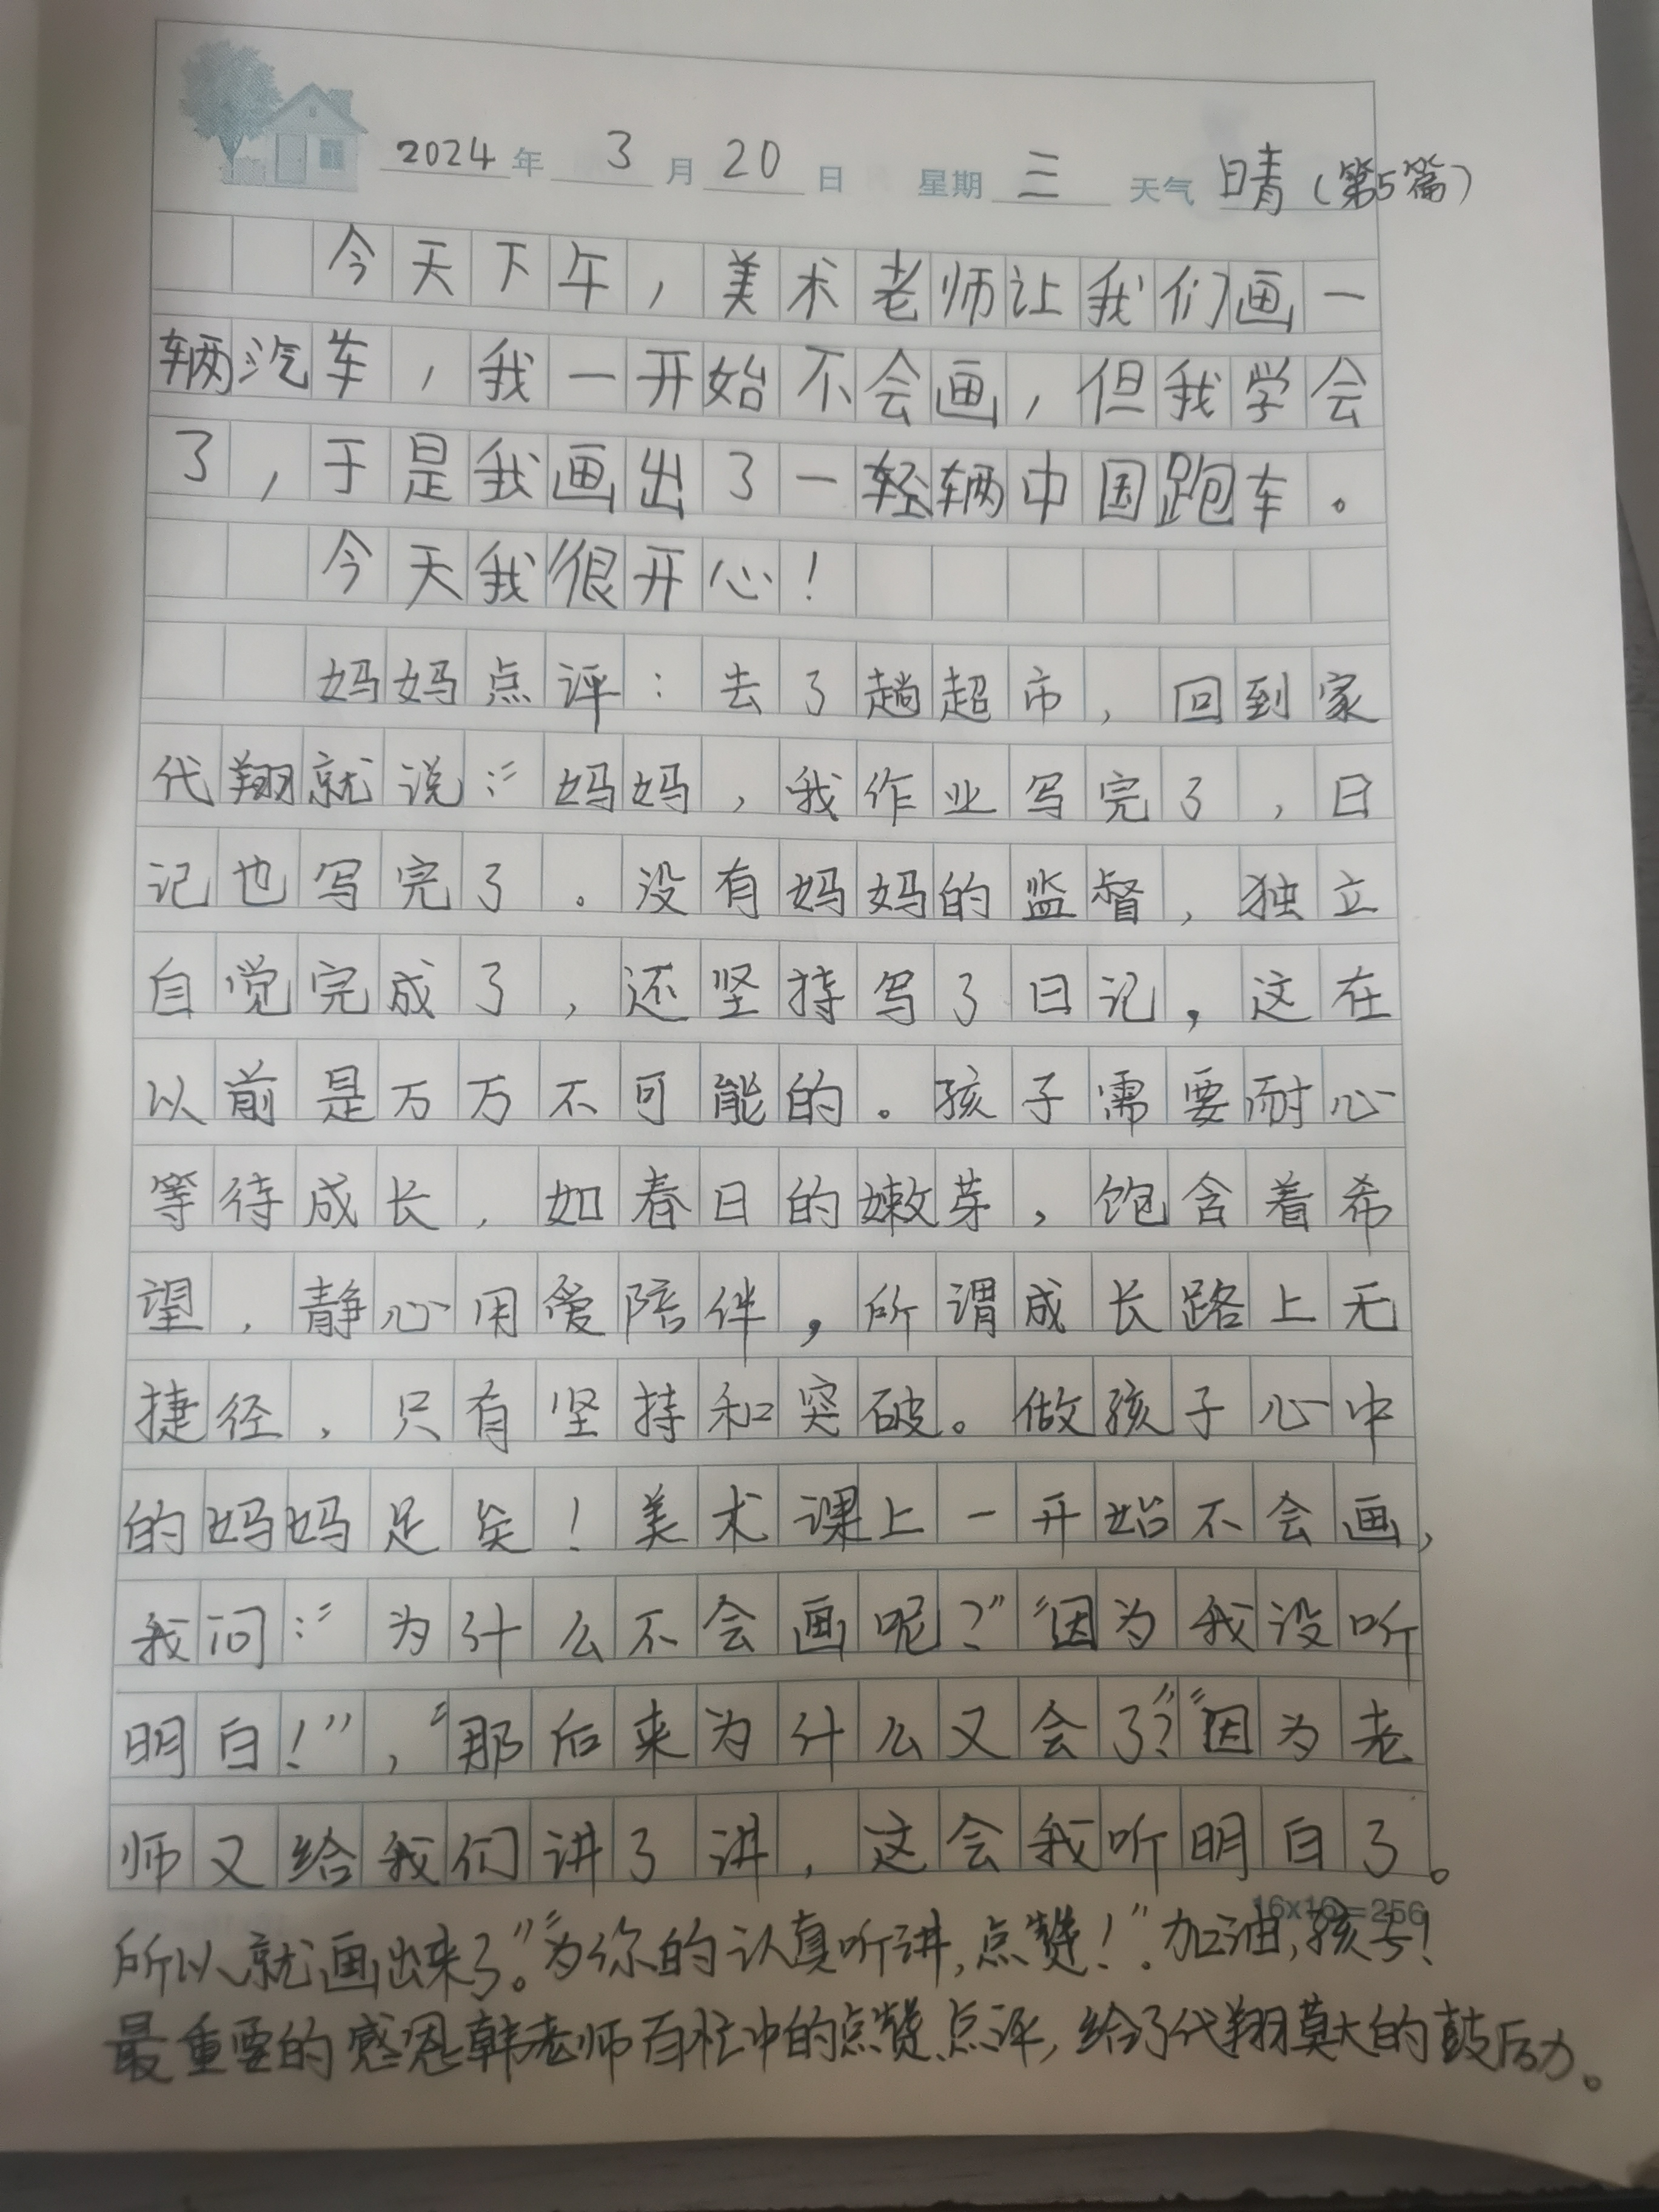 2024年 3月20日 星期三 天气 晴（第5篇）
今天下午，美术老师让我们画一
辆汽车，我一开始不会画，但我学会
了，于是我画出了一轻辆中国跑车。
今天我很开心！
妈妈点评：去了趟超市，回到家
代翔就说：“妈妈，我作业写完了，日
记也写完了。没有妈妈的监督，独立
自觉完成了，还坚持写了日记，这在
以前是万万不可能的。孩子需要耐心
等待成长，如春日的嫩芽，饱含着希
望，静心用爱陪伴，所谓成长路上无
捷径，只有坚持和突破。做孩子心中
的妈妈足矣！美术课上一开始不会画，
我问：“为什么不会画呢？”“因为我没听
明白！”，“那后来为什么又会了？”“因为老
师又给我们讲了讲，这会我听明白了。
16x16=256
所以就画出来了。”“为你的认真听讲，点赞！”。加油，孩子！
最重要的感恩韩老师百忙中的点赞、点评，给了代翔莫大的鼓励。